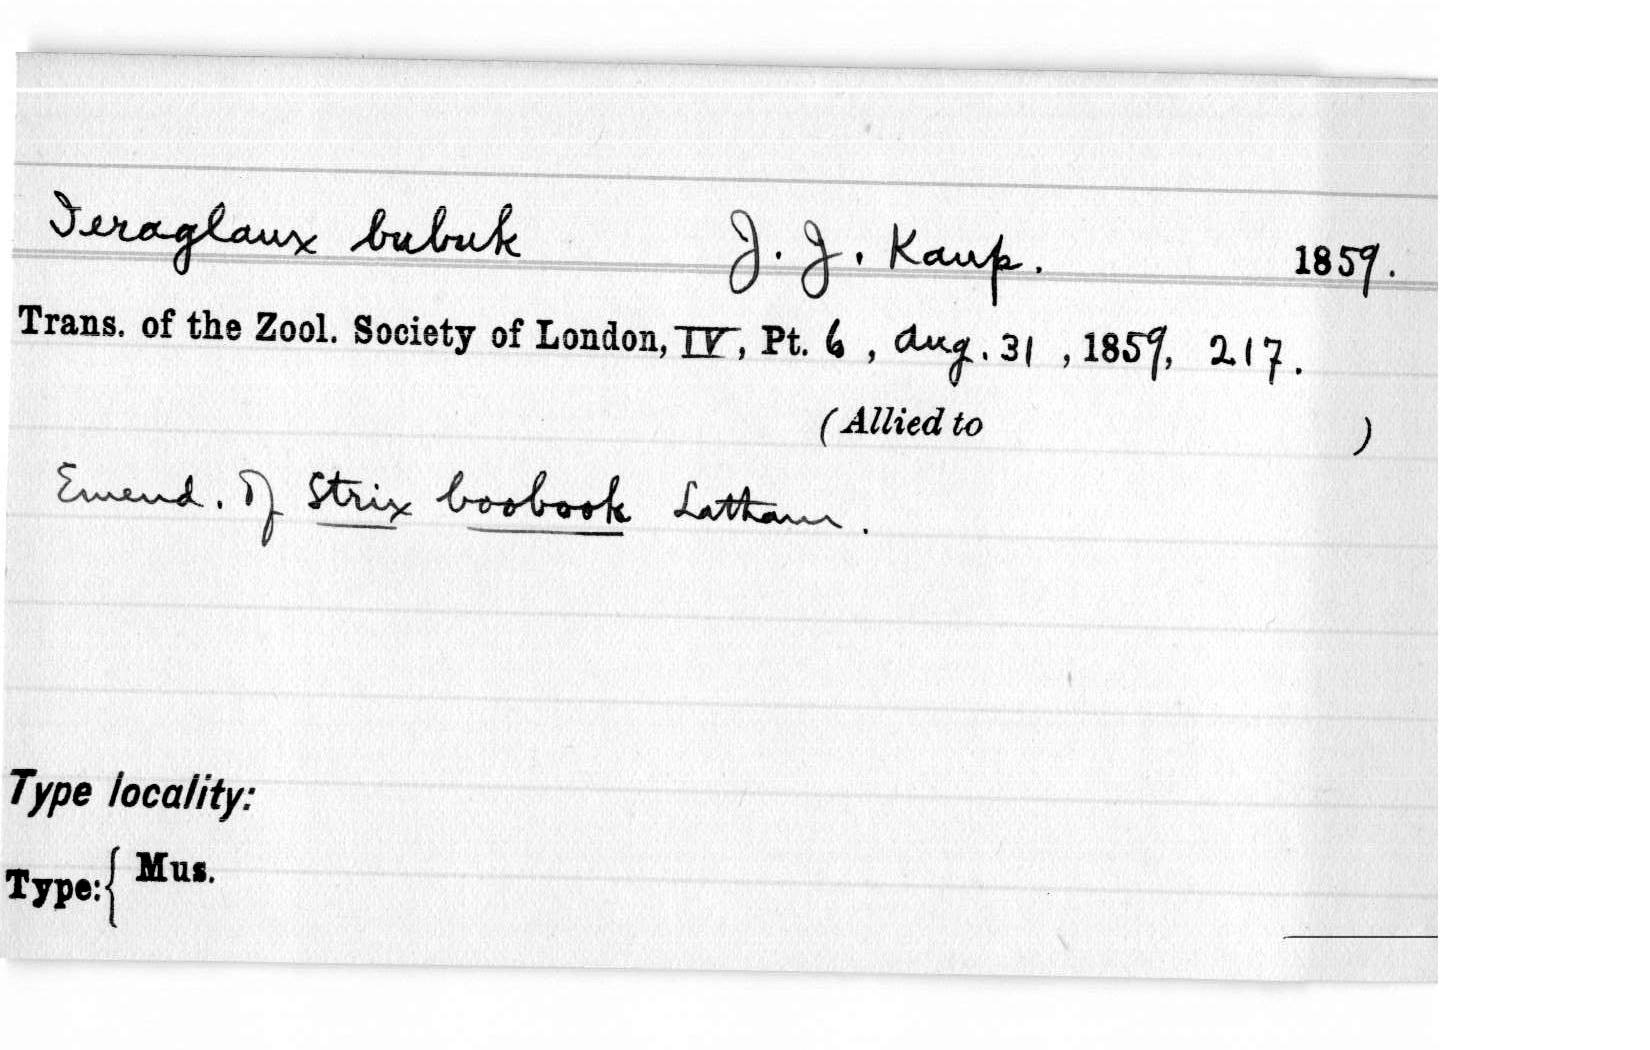 Ieraglaux bubuk J. J. Kaup. 1859.
Trans. of the Zool. Society of London, IV, Pt. 6, Aug. 31, 1859, 217.
(Allied to )
Emend. of Strix boobook Latham.
Type locality:
Type: { Mus.